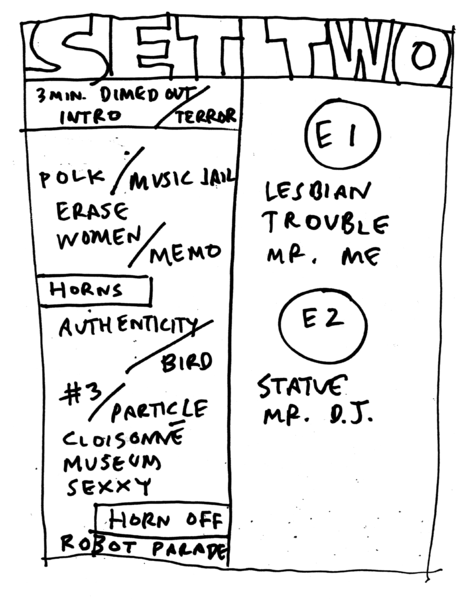 SET TWO
3 MIN. DIMED OUT
INTRO / TERROR
POLK / MUSIC JAIL
ERASE
WOMEN / MEMO
HORNS
AUTHENTICITY /
BIRD
#3 / PARTICLE
CLOISONNÉ
MUSEUM
SEXXY
HORN OFF
ROBOT PARADE
E1
LESBIAN
TROUBLE
MR. ME
E2
STATUE
MR. D.J.